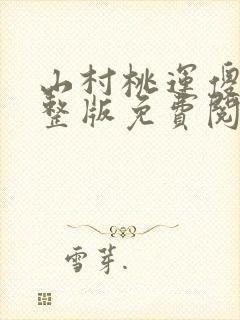 山村桃运傻
整版免費閱
雪芽.